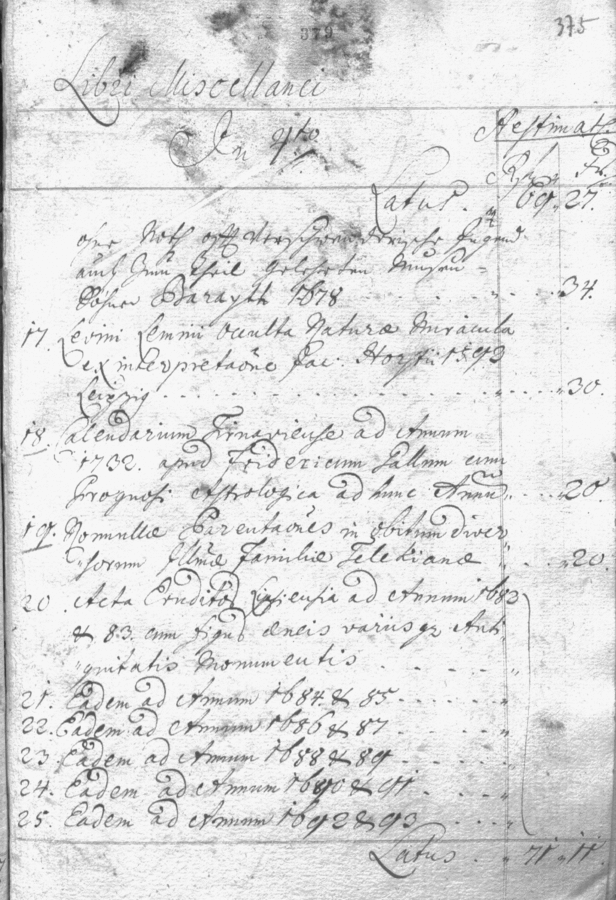 379
375
Libri Miscellanei
In 4to
Aestimatio
Rf. Xr.
Latus. 69. 27.
ohne Noth oft Verschwenderische Jugend
auch zum theil gelehrten Musen
Söhne Barayth 1678 . . . 34.
17. Levini Lemnii occulta Naturæ Miracula
ex interpretaõne Jac. Horstii 1593
Leipzig . . . 30.
18. Calendarium Tirnaviense ad Annum
1732. apud Fridericum Gallum cum
Prognosi Astrologica ad hunc Annũ . . . 20
19. Nonnullæ Parentaões in obitum diver
sorum Illmæ Familiæ Telekianæ . . . 20.
20. Acta Eruditõr Lipsiensia ad Annum 1682
& 83. cum figuris æneis variisq3 Anti
quitatis Monumentis
21. Eadem ad Annum 1684 & 85
22. Eadem ad Annum 1686 & 87
23. Eadem ad Annum 1688 & 89
24. Eadem ad Annum 1690 & 91
25. Eadem ad Annum 1692 & 93
Latus . 71 . 11